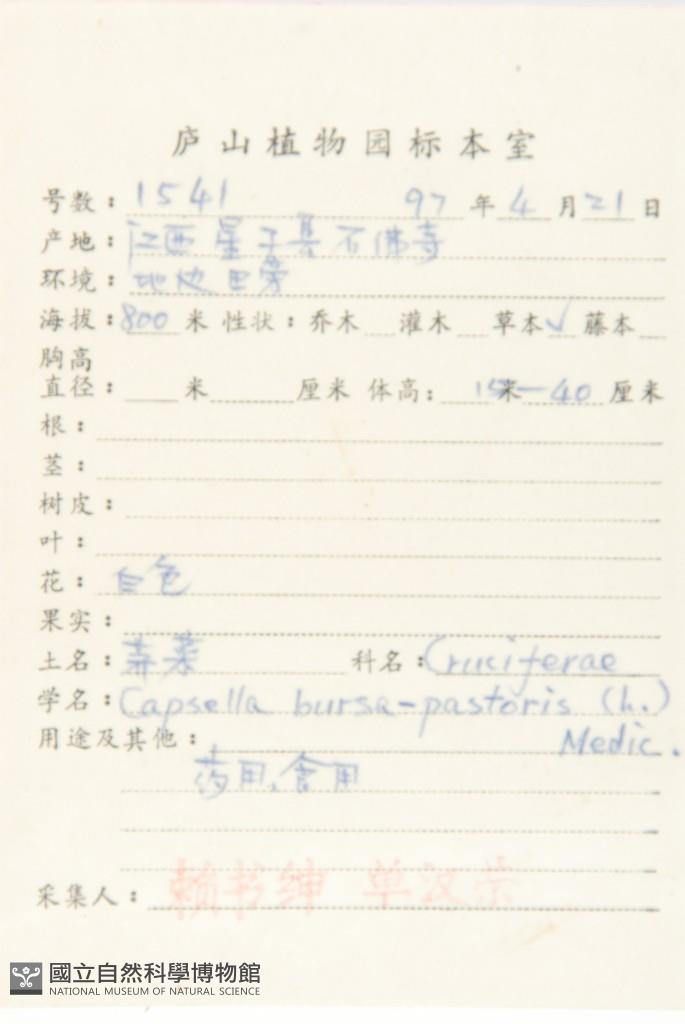 庐山植物园标本室
号数：1541 97年4月21日
产地：江西星子县石佛寺
环境：地边
海拔：800米 性状：乔木 灌木 草本✓ 藤本
胸高
直径： 米 厘米 体高： 15米—40厘米
根：
茎：
树皮：
叶：
花：白色
果实：
土名：荠菜 科名：Cruciferae
学名：Capsella bursa-pastoris (L.)
用途及其他： Medic.
药用、食用
采集人：赖书绅 单汉荣
國立自然科學博物館
NATIONAL MUSEUM OF NATURAL SCIENCE